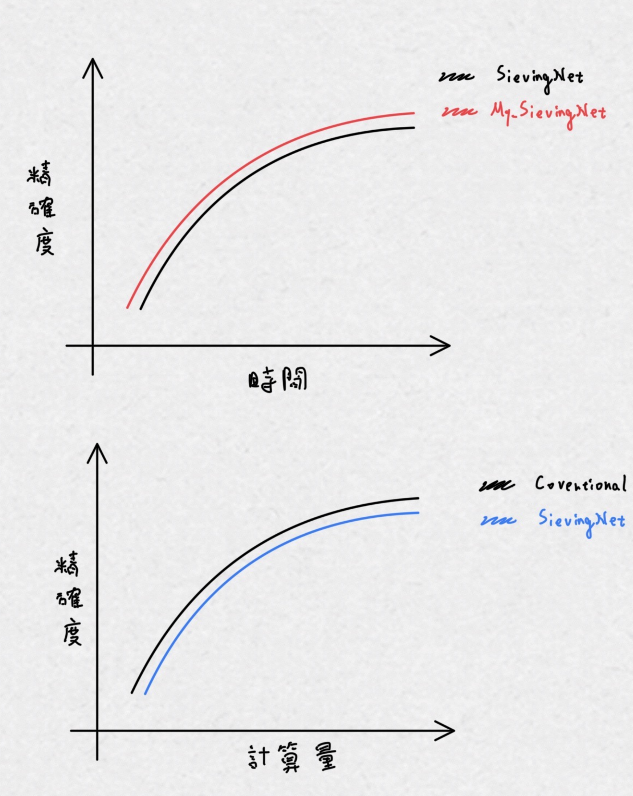 SievingNet
My_SievingNet
精確度
時間
Coventional
SievingNet
精確度
計算量